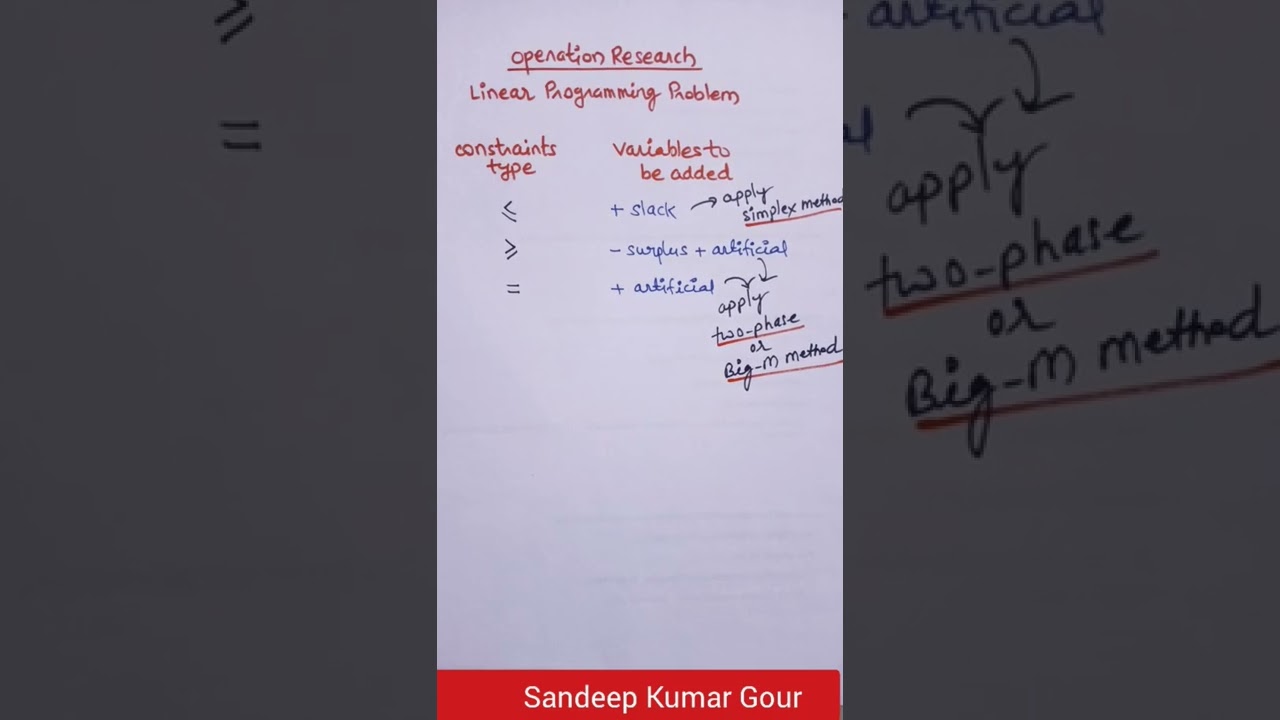 Operation Research
Linear Programming Problem
constraints type
variables to be added
≤ + slack → apply simplex method
≥ - surplus + artificial
= + artificial
apply
two-phase
or
Big-M method
≥
=
artificial
apply
two-phase
or
Big-M method
Sandeep Kumar Gour